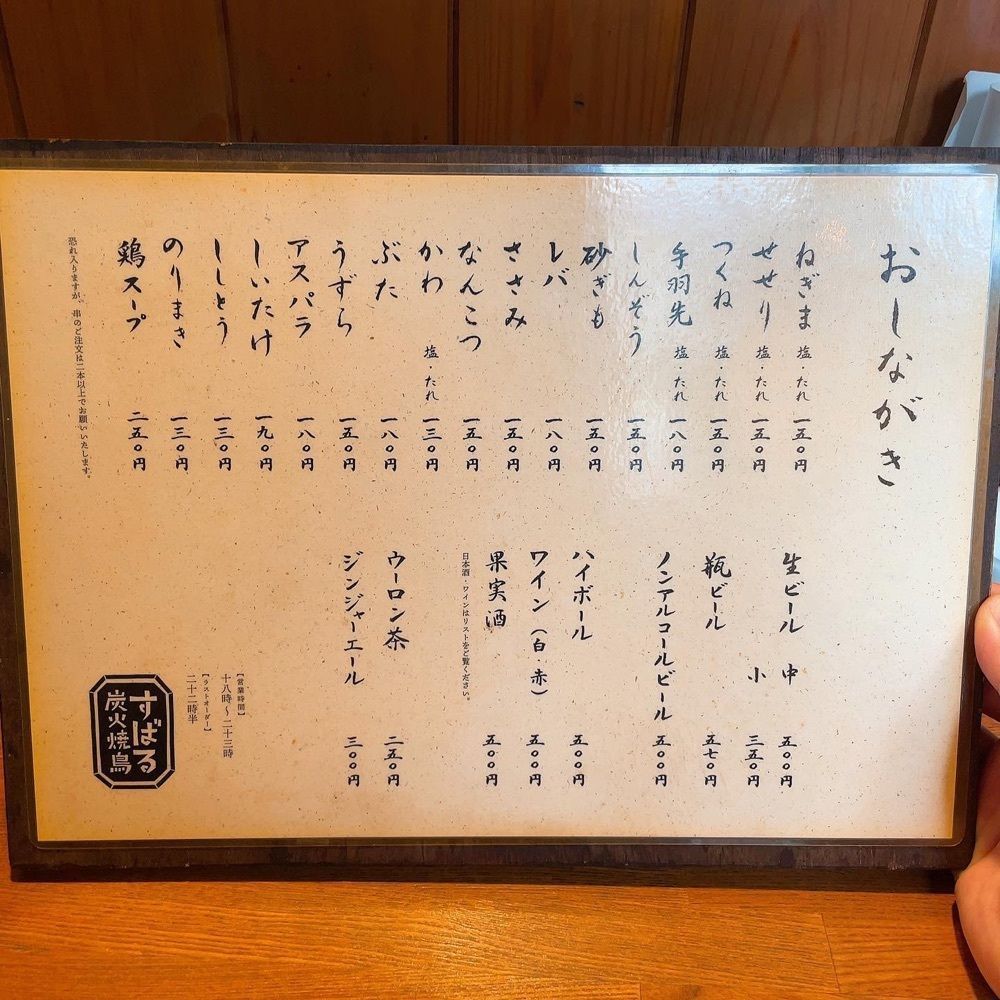 おしながき
ねぎま 塩・たれ 一五〇円
せせり 塩・たれ 一五〇円
つくね 塩・たれ 一五〇円
手羽先 塩・たれ 一八〇円
しんぞう 一五〇円
砂ぎも 一五〇円
レバ 一八〇円
ささみ 一五〇円
なんこつ 一五〇円
かわ 塩・たれ 一三〇円
ぶた 一八〇円
うずら 一五〇円
アスパラ 一八〇円
しいたけ 一九〇円
ししとう 一三〇円
のりまき 一三〇円
鶏スープ 二五〇円
恐れ入りますが、串のご注文は二本以上でお願いいたします。
生ビール 中 五〇〇円
小 三五〇円
瓶ビール 五七〇円
ノンアルコールビール 五〇〇円
ハイボール 五〇〇円
ワイン(白・赤) 五〇〇円
果実酒 五〇〇円
日本酒・ワインはリストをご覧ください。
ウーロン茶 二五〇円
ジンジャーエール 三〇〇円
【営業時間】
十八時〜二十三時
【ラストオーダー】
二十二時半
すばる
炭火焼鳥